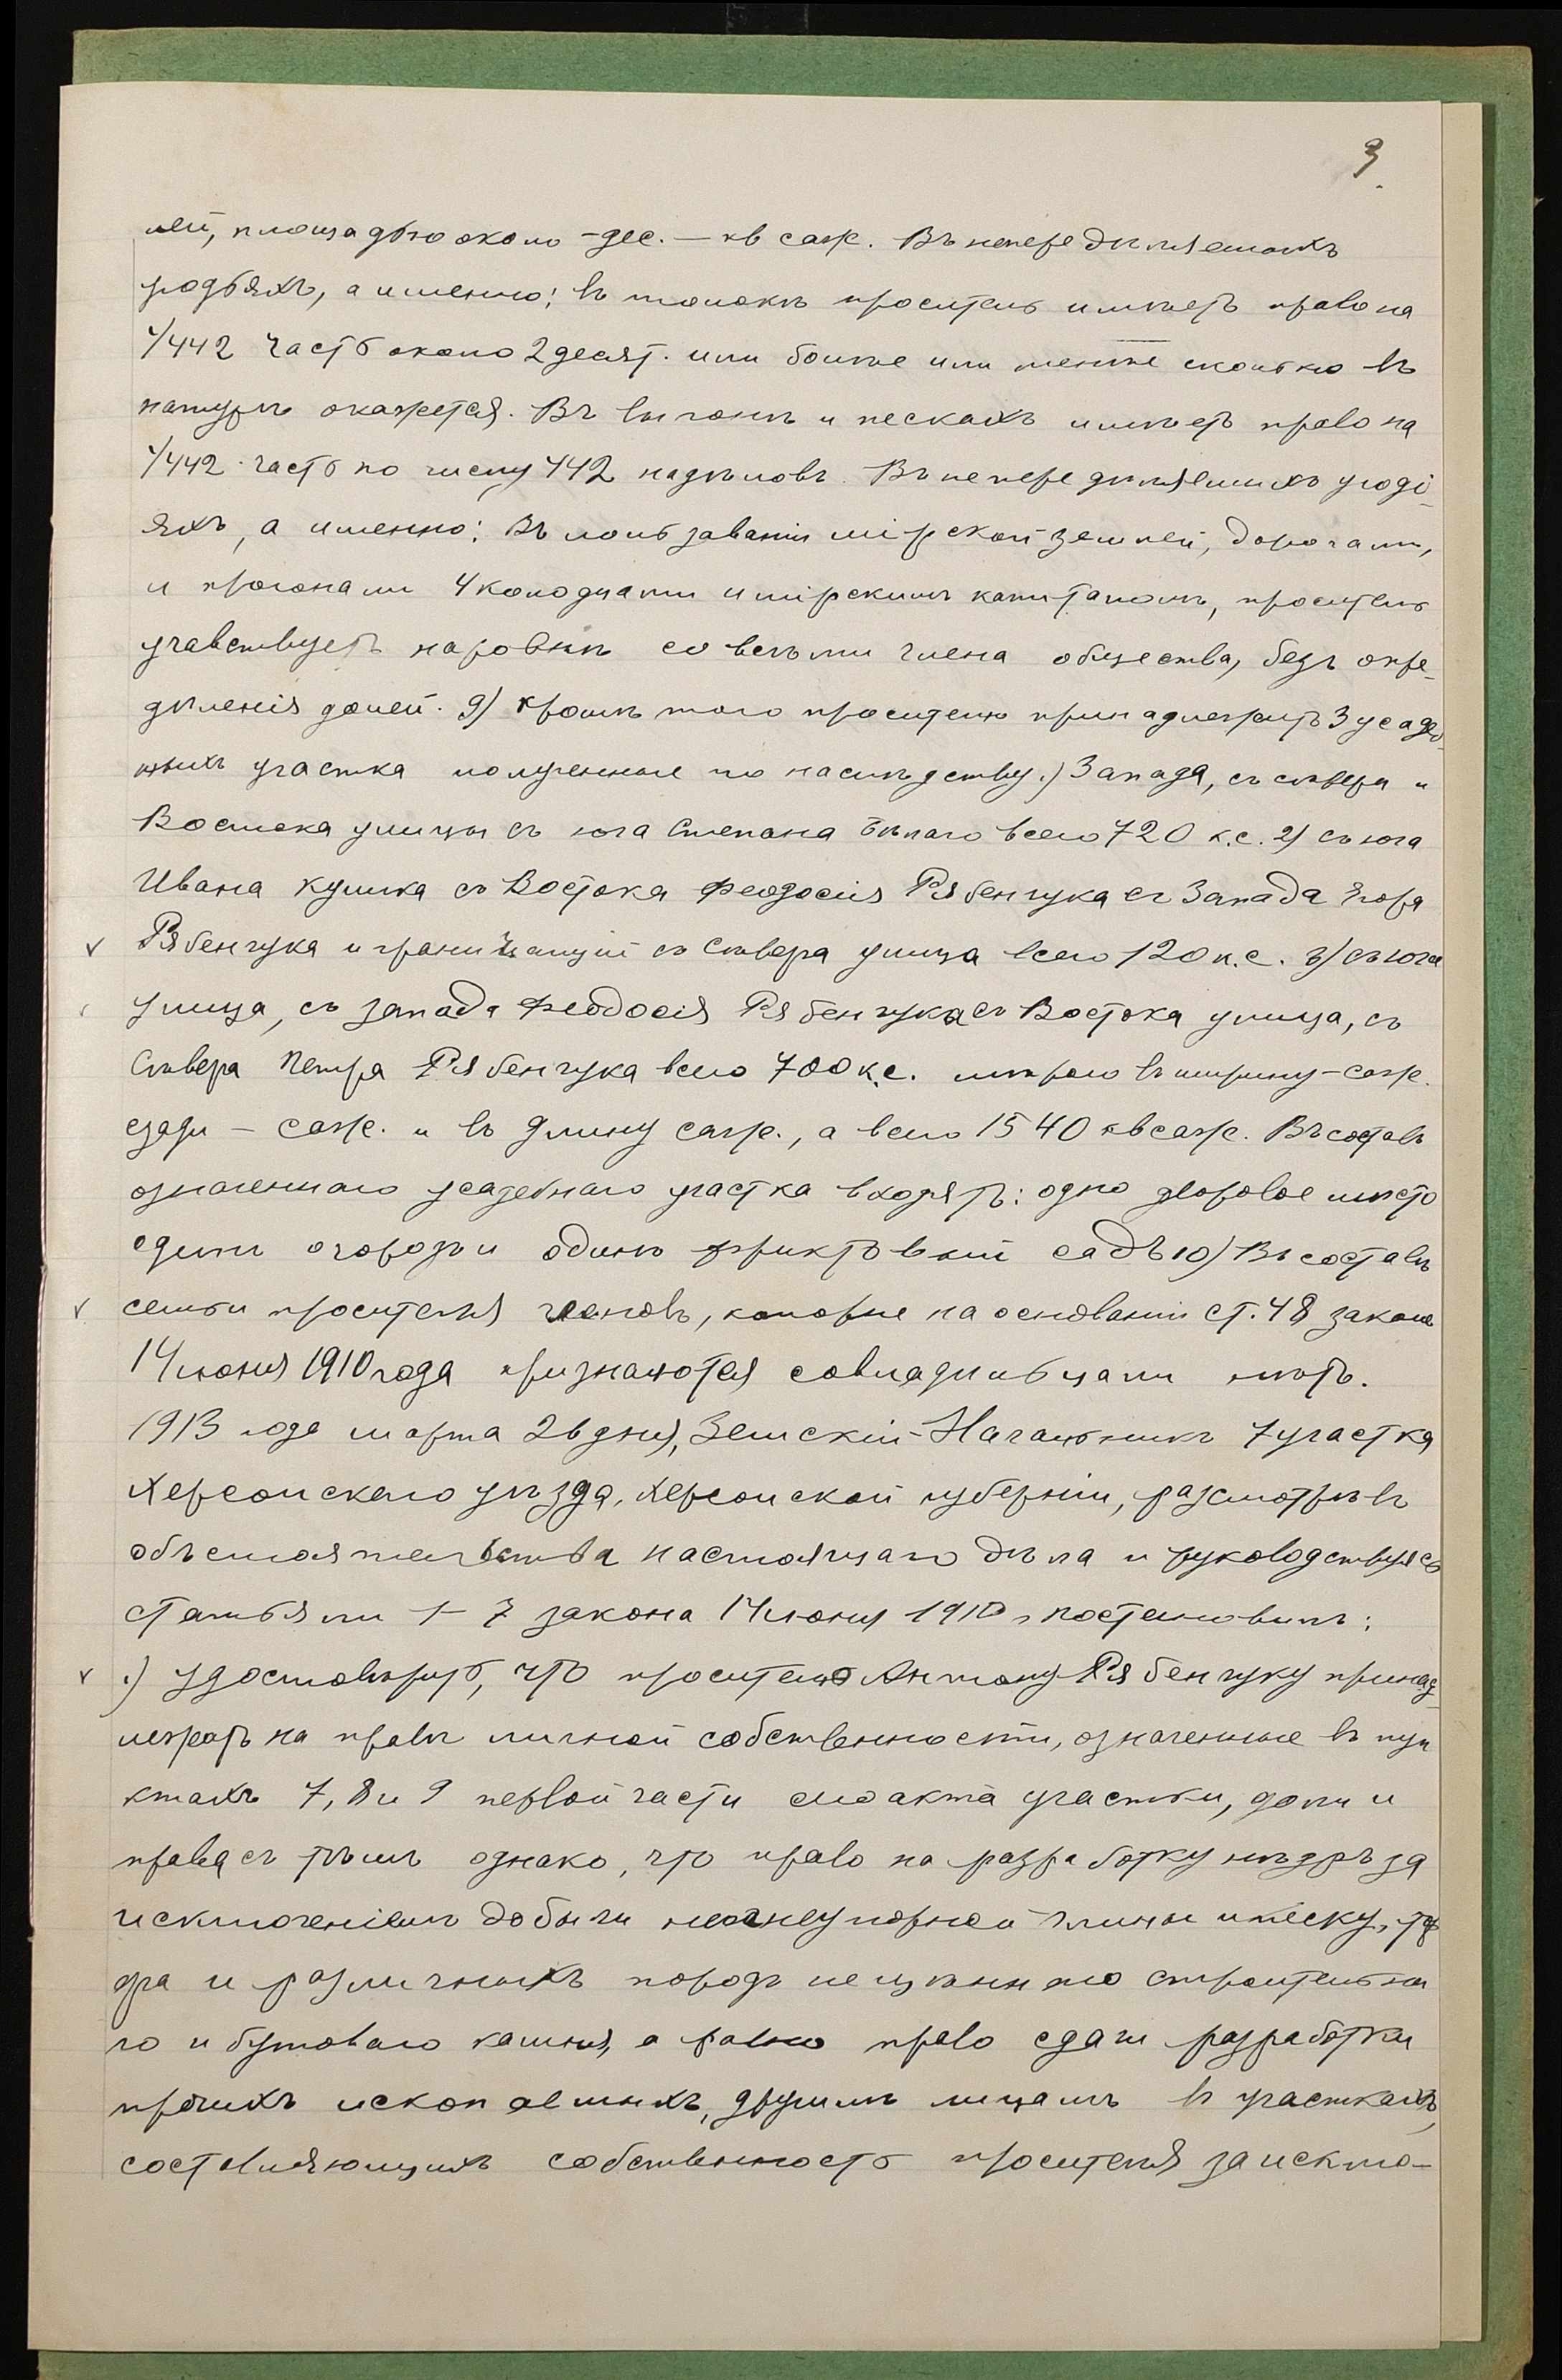 3
лей, площадью около – дес. – кв саж. Въ непередѣляемыхъ
угодьяхъ, а именно: въ толокѣ проситель имѣетъ право на
1/442 часть около 2 десят. или болѣе или менѣе сколько въ
натурѣ окажется. Въ выгонѣ и пескахъ имѣетъ право на
1/442 часть по числу 442 надѣловъ. Въ непередѣляемыхъ угоді-
яхъ, а именно: Въ пользованіи мірской землей, дорогами,
и прогонами 4 колодцами и мірскимъ капиталомъ, проситель
учавствуетъ наровнѣ со всѣми члена общества, безъ опре-
дѣленія долей. 9) кромѣ того просителю принадлежитъ 3 усадеб-
ныхъ участка полученные по наслѣдству 1) Запада, съ сѣвера и
Востока улицы съ юга Степана Бѣлаго всего 720 к.с. 2) съ юга
Ивана Кулика съ Востока Феодосія Рябенчука съ Запада Егора
Рябенчука и граничащій съ Сѣвера улица всего 120 к.с. 3) съ юга
улица, съ запада Феодосія Рябенчука съ Востока улица, съ
Сѣвера Петра Рябенчука всего 700 к.с. мѣрою въ ширину – саж.
сзади – саж. и въ длину саж., а всего 1540 кв саж. Въ составъ
означеннаго усадебнаго участка входятъ: одно дворовое мѣсто
одинъ огородъ и одинъ фруктовый садъ 10) Въ составѣ
семьи просителя членовъ, которые на основаніи ст. 48 закона
14 июня 1910 года признаются совладѣльцами нѣтъ.
1913 года марта 26 дня, Земскій Начальникъ 7 участка
Херсонскаго уѣзда, Херсонской губерніи, разсмотрѣвъ
обстоятельства настоящаго дѣла и руководствуясь
статьями 1–7 закона 14 июня 1910 г. постановилъ:
1) удостовѣрить, что просителю Антону Рябенчуку принад-
лежатъ на правѣ личной собственности, означенные въ пун
ктахъ 7, 8 и 9 первой части сего акта участки, доли и
права съ тѣмъ однако, что право на разработку нѣдръ за
исключеніемъ добычи неогнеупорной глины и песку, то
фа и различныхъ породъ нецѣннаго строительна
го и бутоваго камня, а равно право сдачи разработки
прочихъ ископаемыхъ, другимъ лицамъ въ участкахъ,
составляющихъ собственность просителя за исклю-